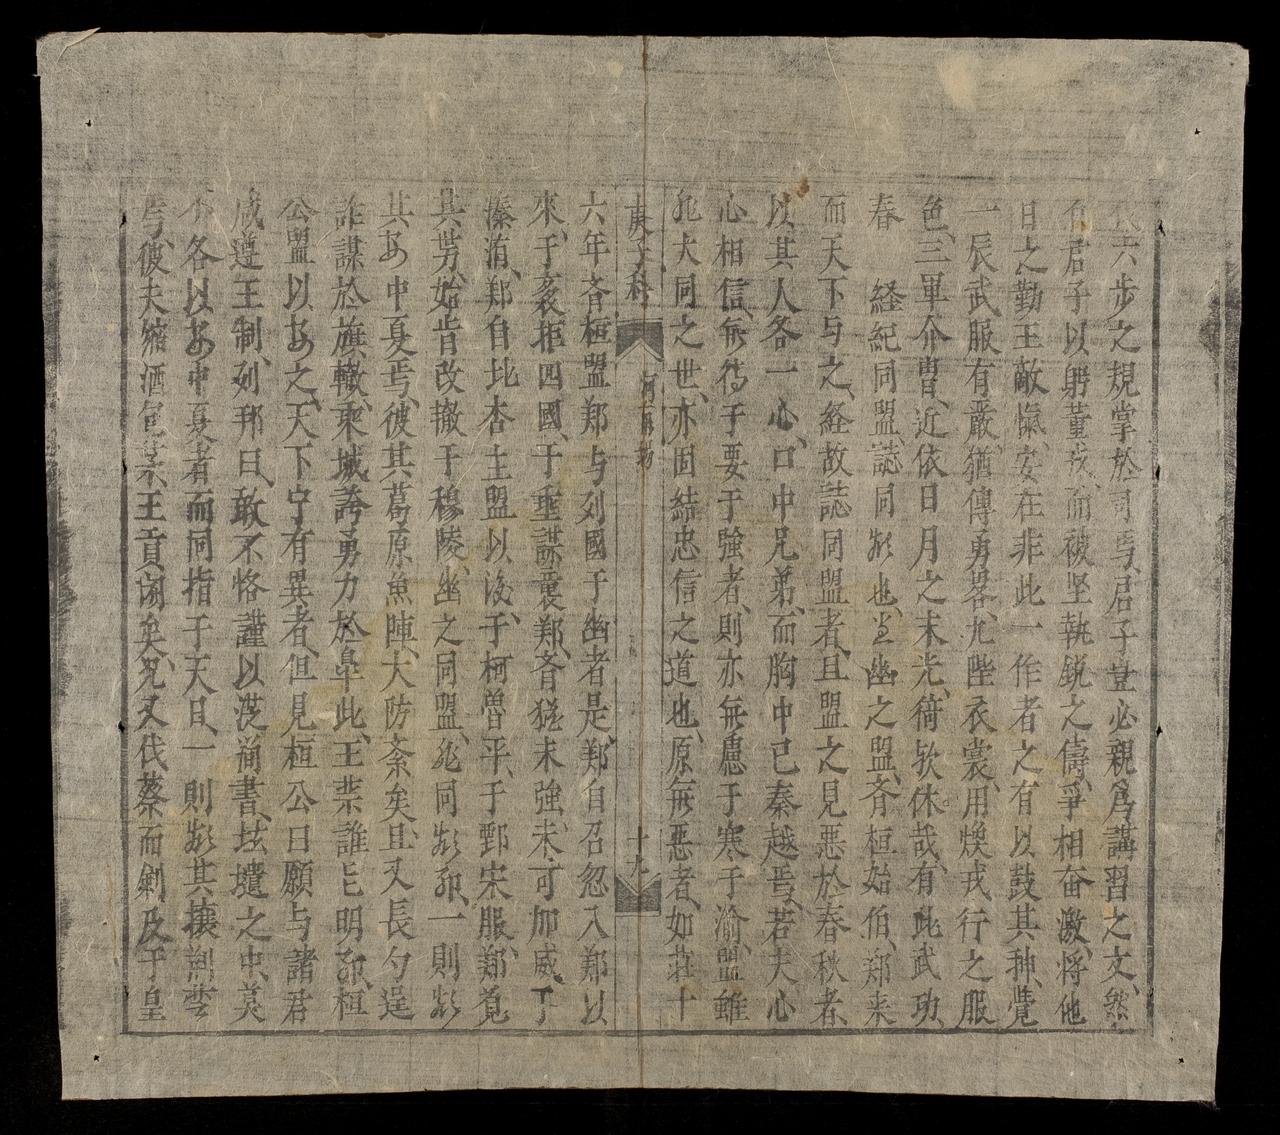 六步之規掌於司馬君子豈必親爲講習之文然
君子以躬董戎而被坚執鋭之儔爭相奋激将他
日之勤王敵愾安在非此一作者之有以鼓其神覺
一辰武服有嚴猶傳勇畧九陛衣裳用煥戎行之服
色三軍介曹近依日月之末光猗欤休哉有此武功
春 経紀同盟誌同欤也盖幽之盟斉桓始伯郑来
而天下与之経故誌同盟者且盟之見悪於春秋者
以其人各一心口中兄弟而胸中已秦越焉若夫心
心相信無待于要于強者則亦無慮于寒于渝盟雖
非大同之世亦固結忠信之道也原無悪者如莊十
庚子科
河南場
十九
六年斉桓盟郑与列國于幽者是郑自召忽入郑以
來于袤拒四國于垂謀襄郑斉猶未強未可加威于
溱洧郑自北杏主盟以後于柯曽平于鄄宋服郑覓
其势始肯改撤于穆陵幽之同盟非同欤耶一則
其中夏焉彼其葛原魚陣大防紊矣且又長勺逞
誰謀於旗轍乘城誇勇力於皐此王業誰氏明耶桓
公盟以之天下宁有異者但見桓公曰願与諸君
咸遵王制列邦曰敢不恪謹以漠簡書玆壇之中莫
不各以中夏者而同指于天日一則其攘荊蛮
焉彼夫縮酒包茅王貢闕矣况又伐蔡而劍及于皇